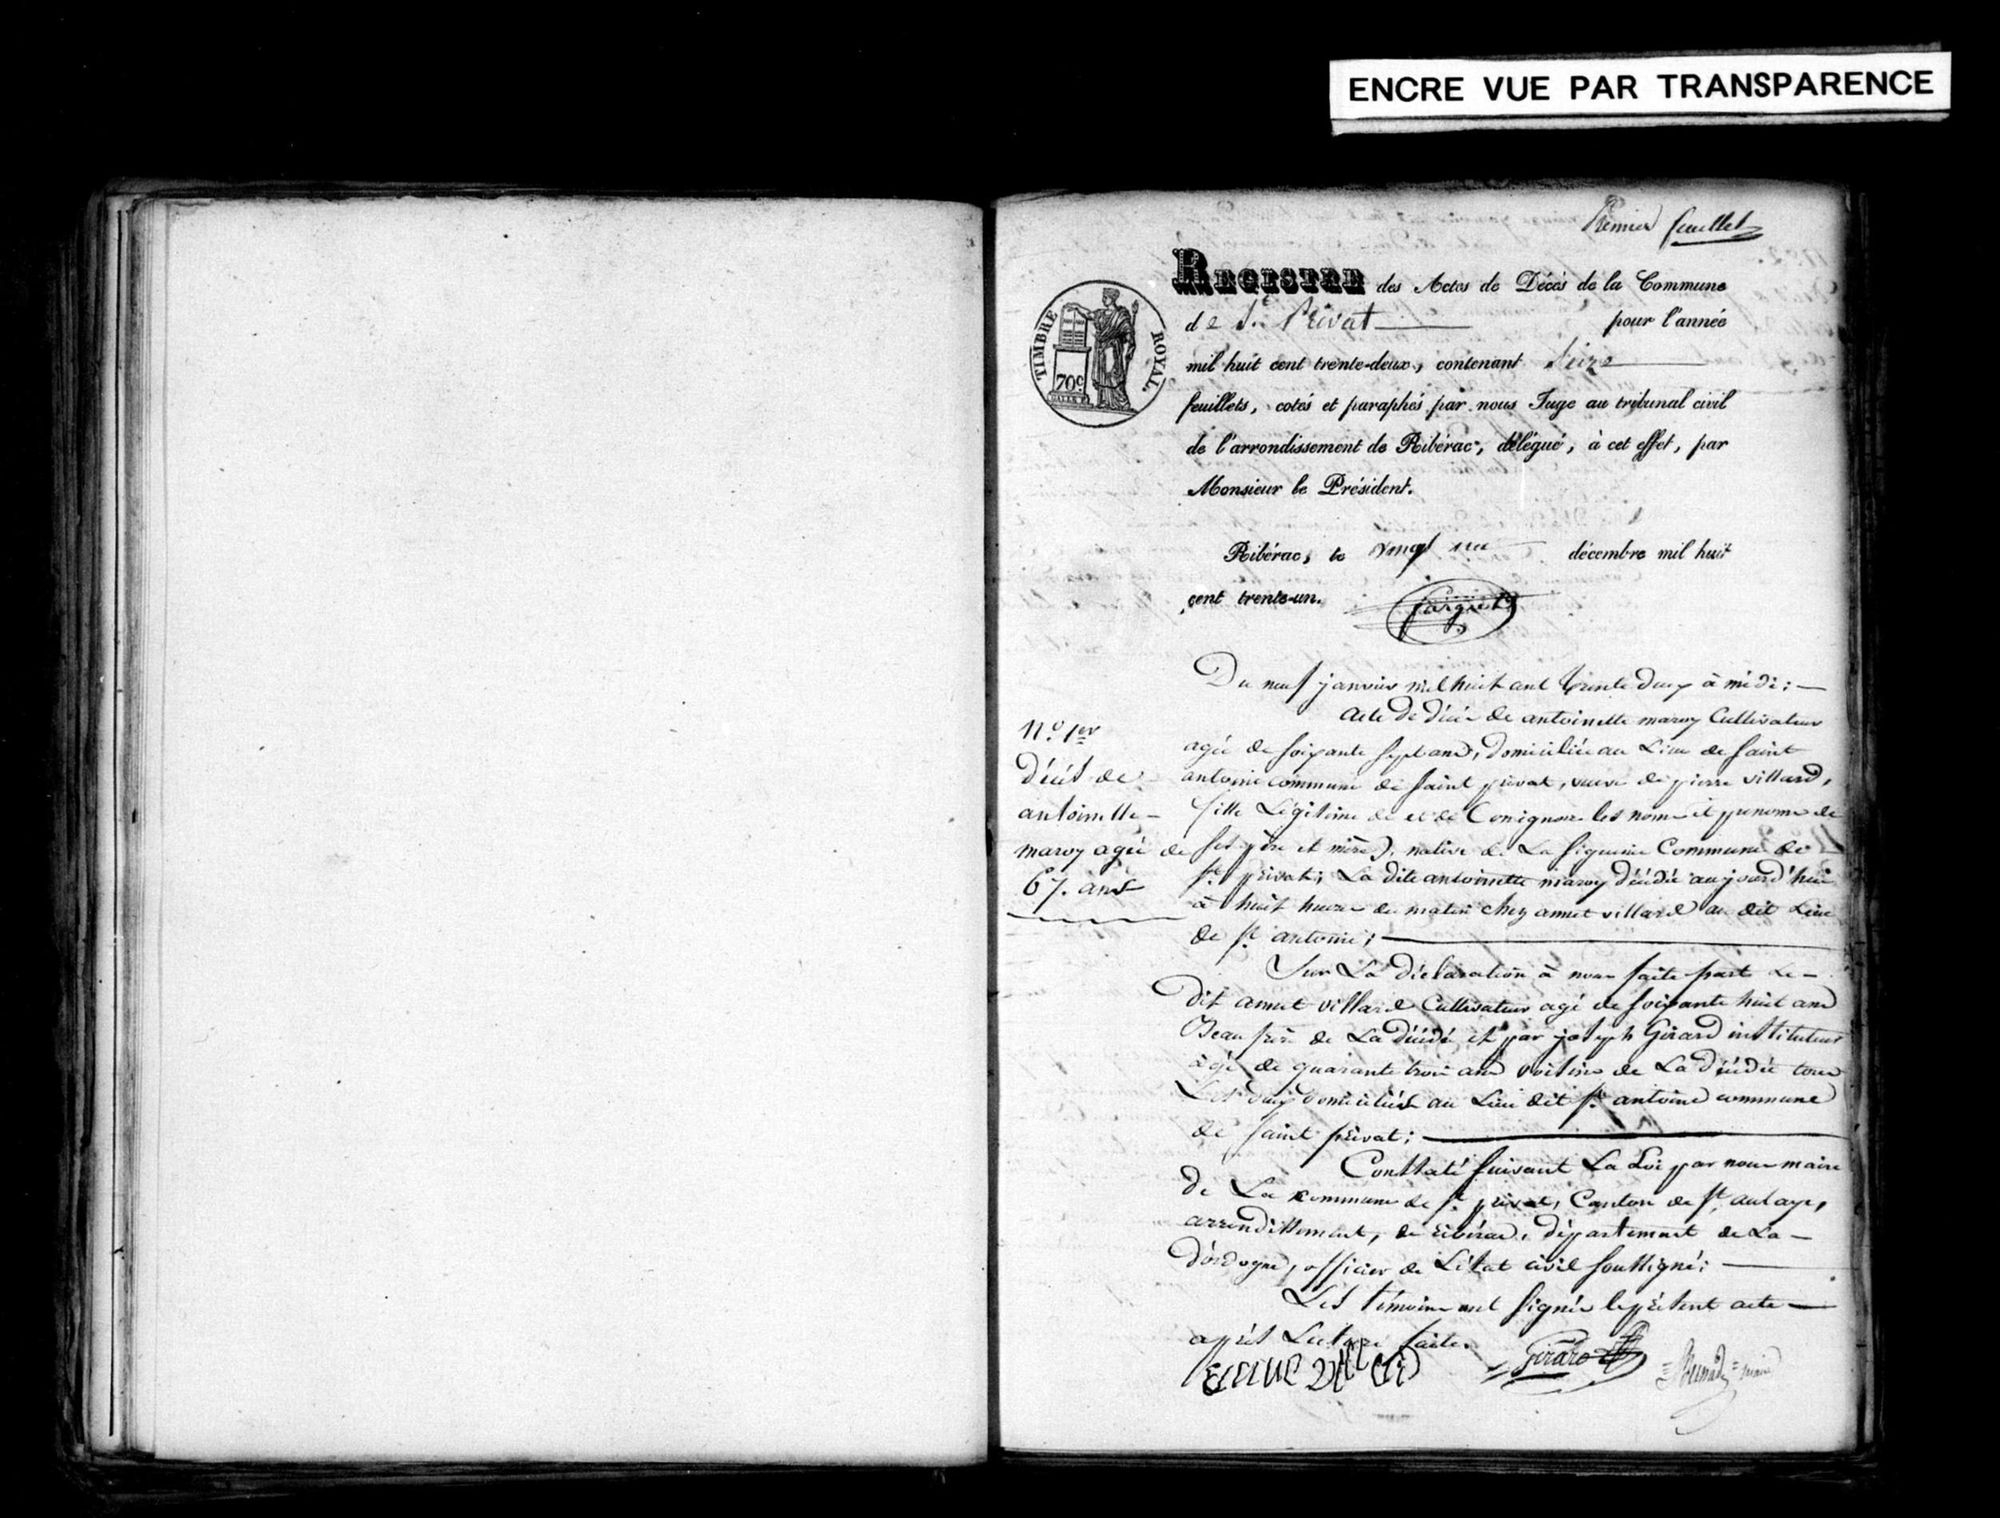 ENCRE VUE PAR TRANSPARENCE
Premier feuillet
REGISTRE des Actes de Décès de la Commune
de St Privat pour l'année
mil huit cent trente-deux, contenant seize
feuillets, cotés et paraphés par nous Juge au tribunal civil
de l'arrondissement de Ribérac, délégué, à cet effet, par
Monsieur le Président.
TIMBRE ROYAL.
70c
Ribérac, le vingt un décembre mil huit
cent trente-un.
Du neuf janvier mil huit cent trente deux à midi;
acte de décés de antoinette maroy Cultivateur
agée de soixante sept ans, domiciliée au Lieu de saint
antoine commune de saint privat, veuve de pierre villard,
fille Légitime de et de Consigner les nom et prenoms de
ses père et mère), native de La Commune de
st privat; La dite antoinette maroy décédée aujourd'hui
à huit heures du matin chez annet villard au dit Lieu
de st antoine;
N.o 1er
décés de
antoinette
maroy agée de
67. ans
Sur La déclaration à nous faite part Le
dit annet villard Cultivateur agé de soixante huit ans
Beau frère de La décédée et par joseph Girard instituteur
âgé de quarante trois ans voisin de La décédée tous
Les deux domiciliés au Lieu dit st antoine commune
de saint privat;
Constaté suivant La Loi par nous maire
de La commune de st privat, Canton de st aulaye,
arrondissement, de ribérac, département de La
dordogne, officier de L'état civil soussigné;
Les témoins ont signés le présent acte
après Lecture faite.
Girard
maire